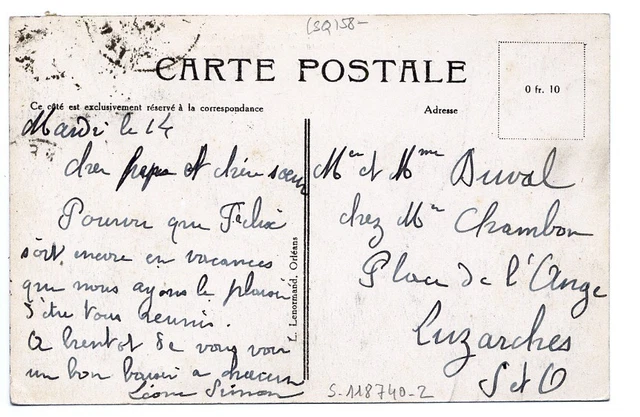 (SQ)58-
CARTE POSTALE
0 fr. 10
Ce côté est exclusivement réservé à la correspondance
Adresse
Mardi le 14
cher et chère sœur
Pourvu que Félix
soit encore en vacances
que nous ayons le plaisir
d'être tous réunis.
A bientot de vous voir
un bon baiser a chacun
Léone Simon
L. Lenormand, Orléans
Mr et Mme Duval
chez Mr Chambon
Place de l'Ange
Luzarches
S et O
S-118740-2